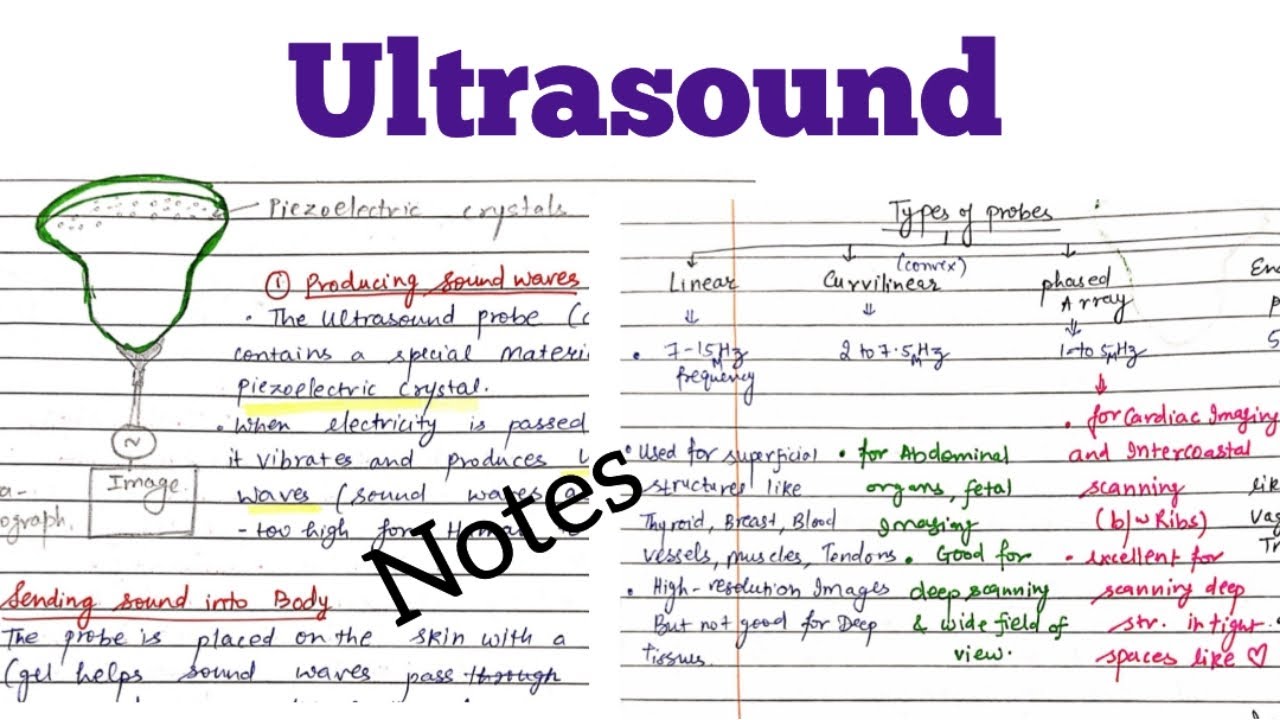 Ultrasound
Piezoelectric crystals
① Producing sound waves
• The ultrasound probe (
contains a special materi
piezoelectric crystal.
• When electricity is passed
it vibrates and produces
waves (sound waves
- too high for Huma
Image
ograph.
Sending sound into Body
The probe is placed on the skin with a
(gel helps sound waves pass through
Notes
Types of probes
Linear
(convex)
Curvilinear
phased
Array
7-15MHz
frequency
2 to 7.5MHz
1 to 5MHz
• Used for superficial
structures like
Thyroid, Breast, Blood
vessels, muscles, Tendons
• High-resolution Images
But not good for Deep
tissues.
• for Abdominal
organs, fetal
Imaging
• Good for
deep scanning
& wide field of
view.
• for Cardiac Imaging
and Intercoastal
scanning
(b/w Ribs)
• excellent for
scanning deep
str. in tight
spaces like ♡
En
p
5
lik
vag
Tr